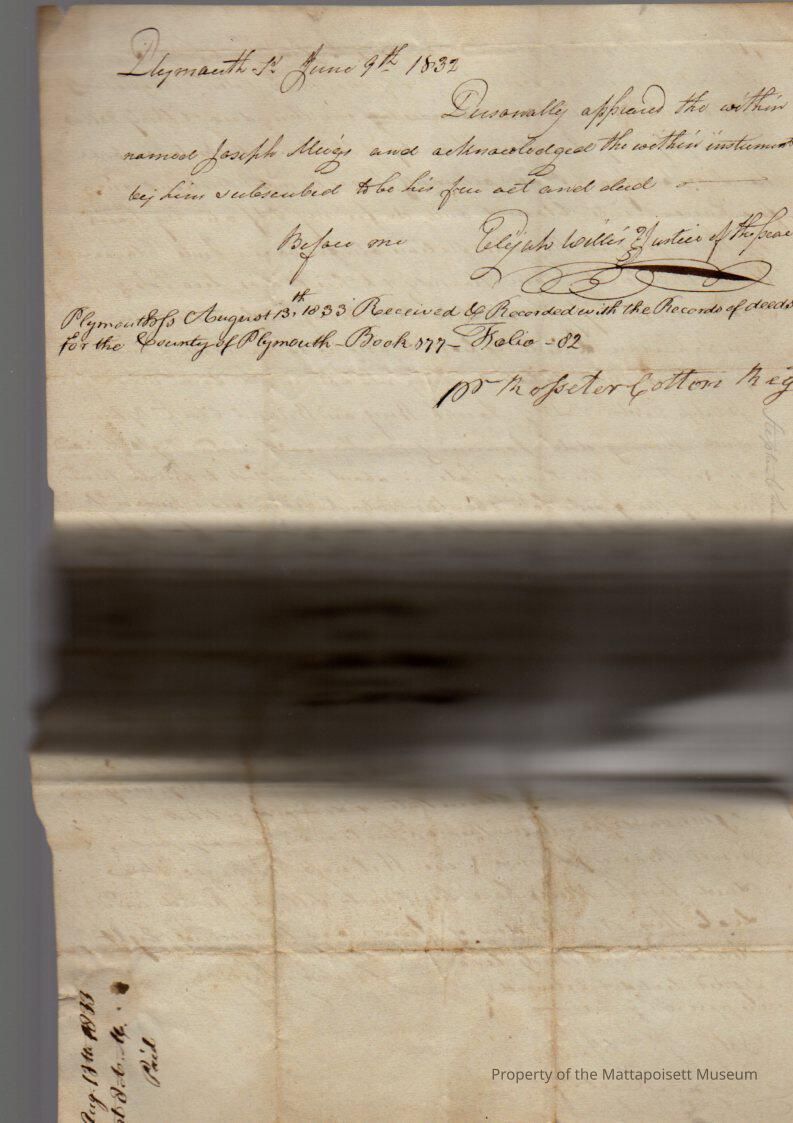 Plymouth Ss June 9th 1832
Personally appeared the within
named Joseph Meigs and acknowledged the within instrument
by him subscribed to be his free act and deed
Before me Elijah Willis Justice of the Peac
Plymouth Ss August 13th, 1833 Received & Recorded with the Records of deeds
for the County of Plymouth - Book 177 - Folio - 82
pr Rosseter Cotton Reg
Stephen C
Aug 13th 1833
Paid
Property of the Mattapoisett Museum